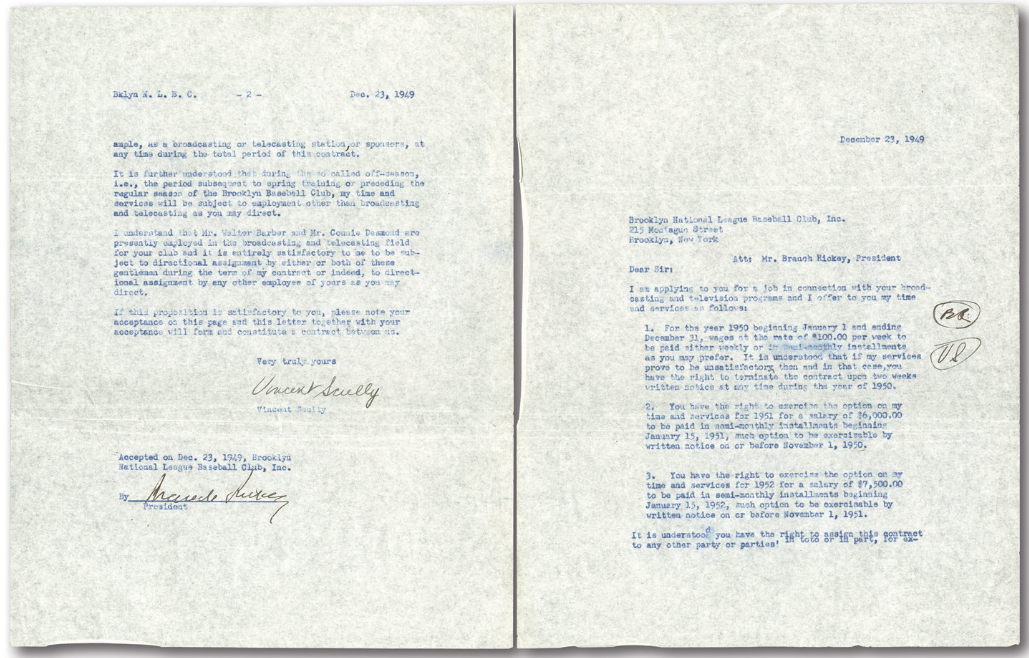 December 23, 1949
Brooklyn National League Baseball Club, Inc.
215 Montague Street
Brooklyn, New York
Att: Mr. Branch Rickey, President
Dear Sir:
I am applying to you for a job in connection with your broad-
casting and television programs and I offer to you my time
and services as follows:
1. For the year 1950 beginning January 1 and ending
December 31, wages at the rate of $100.00 per week to
be paid either weekly or in semi-monthly installments
as you may prefer. It is understood that if my services
prove to be unsatisfactory then and in that case,you
have the right to terminate the contract upon two weeks
written notice at any time during the year of 1950.
BR
VS
2. You have the right to exercise the option on my
time and services for 1951 for a salary of $6,000.00
to be paid in semi-monthly installments beginning
January 15, 1951, such option to be exercisable by
written notice on or before November 1, 1950.
3. You have the right to exercise the option on my
time and services for 1952 for a salary of $7,500.00
to be paid in semi-monthly installments beginning
January 15, 1952, such option to be exercisable by
written notice on or before November 1, 1951.
It is understood you have the right to assign this contract
to any other party or parties' in toto or in part, for ex-
Bklyn N. L. B. C. - 2 - Dec. 23, 1949
ample, as a broadcasting or telecasting station,or sponsors, at
any time during the total period of this contract.
It is further understood that during the so called off-season,
i.e., the period subsequent to spring training or preceding the
regular season of the Brooklyn Baseball Club, my time and
services will be subject to employment other than broadcasting
and telecasting as you may direct.
I understand that Mr. Walter Barber and Mr. Connie Desmond are
presently employed in the broadcasting and telecasting field
for your club and it is entirely satisfactory to me to be sub-
ject to directional assignment by either or both of these
gentleman during the term of my contract or indeed, to direct-
ional assignment by any other employee of yours as you may
direct.
If this proposition is satisfactory to you, please note your
acceptance on this page and this letter together with your
acceptance will form and constitute a contract between us.
Very truly yours
Vincent Scully
Vincent Scully
Accepted on Dec. 23, 1949, Brooklyn
National League Baseball Club, Inc.
By Branch Rickey
President